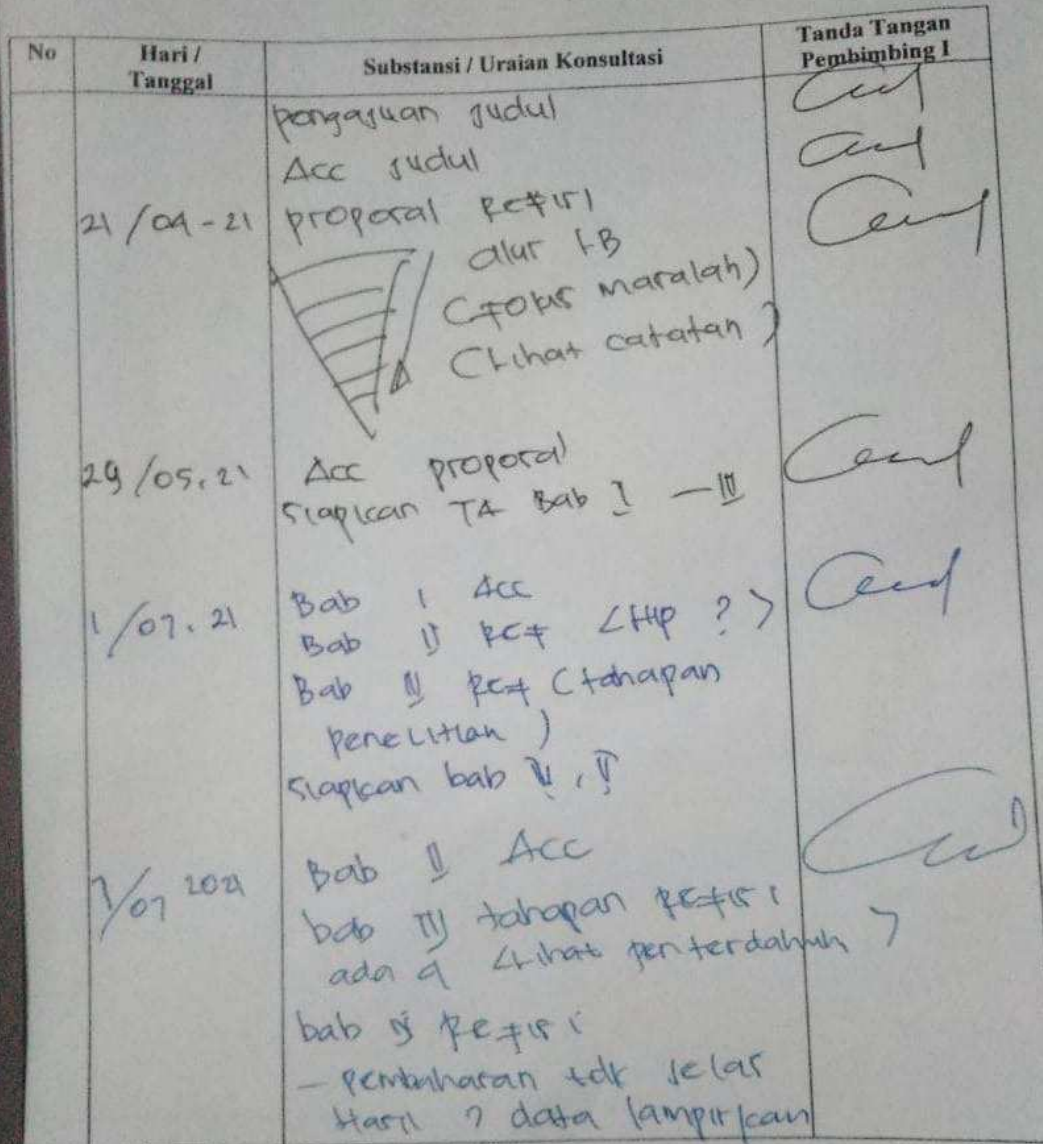 No
Hari /
Tanggal
Substansi / Uraian Konsultasi
Tanda Tangan
Pembimbing I
pengajuan judul
Acc judul
21/04-21 proposal Refisi
alur LB
(Fokus masalah)
(Lihat catatan)
29/05.21 Acc proposal
siapkan TA Bab I - III
1/07.21 Bab I Acc
Bab II Ref < HP ? >
Bab III Ref (tahapan
penelitian)
siapkan bab IV, V
7/07 2021 Bab II Acc
bab III tahapan Refisi
ada 9 <Lihat pen terdahulu >
bab IV Refisi
- pembahasan tdk jelas
Hasil ? data lampirkan